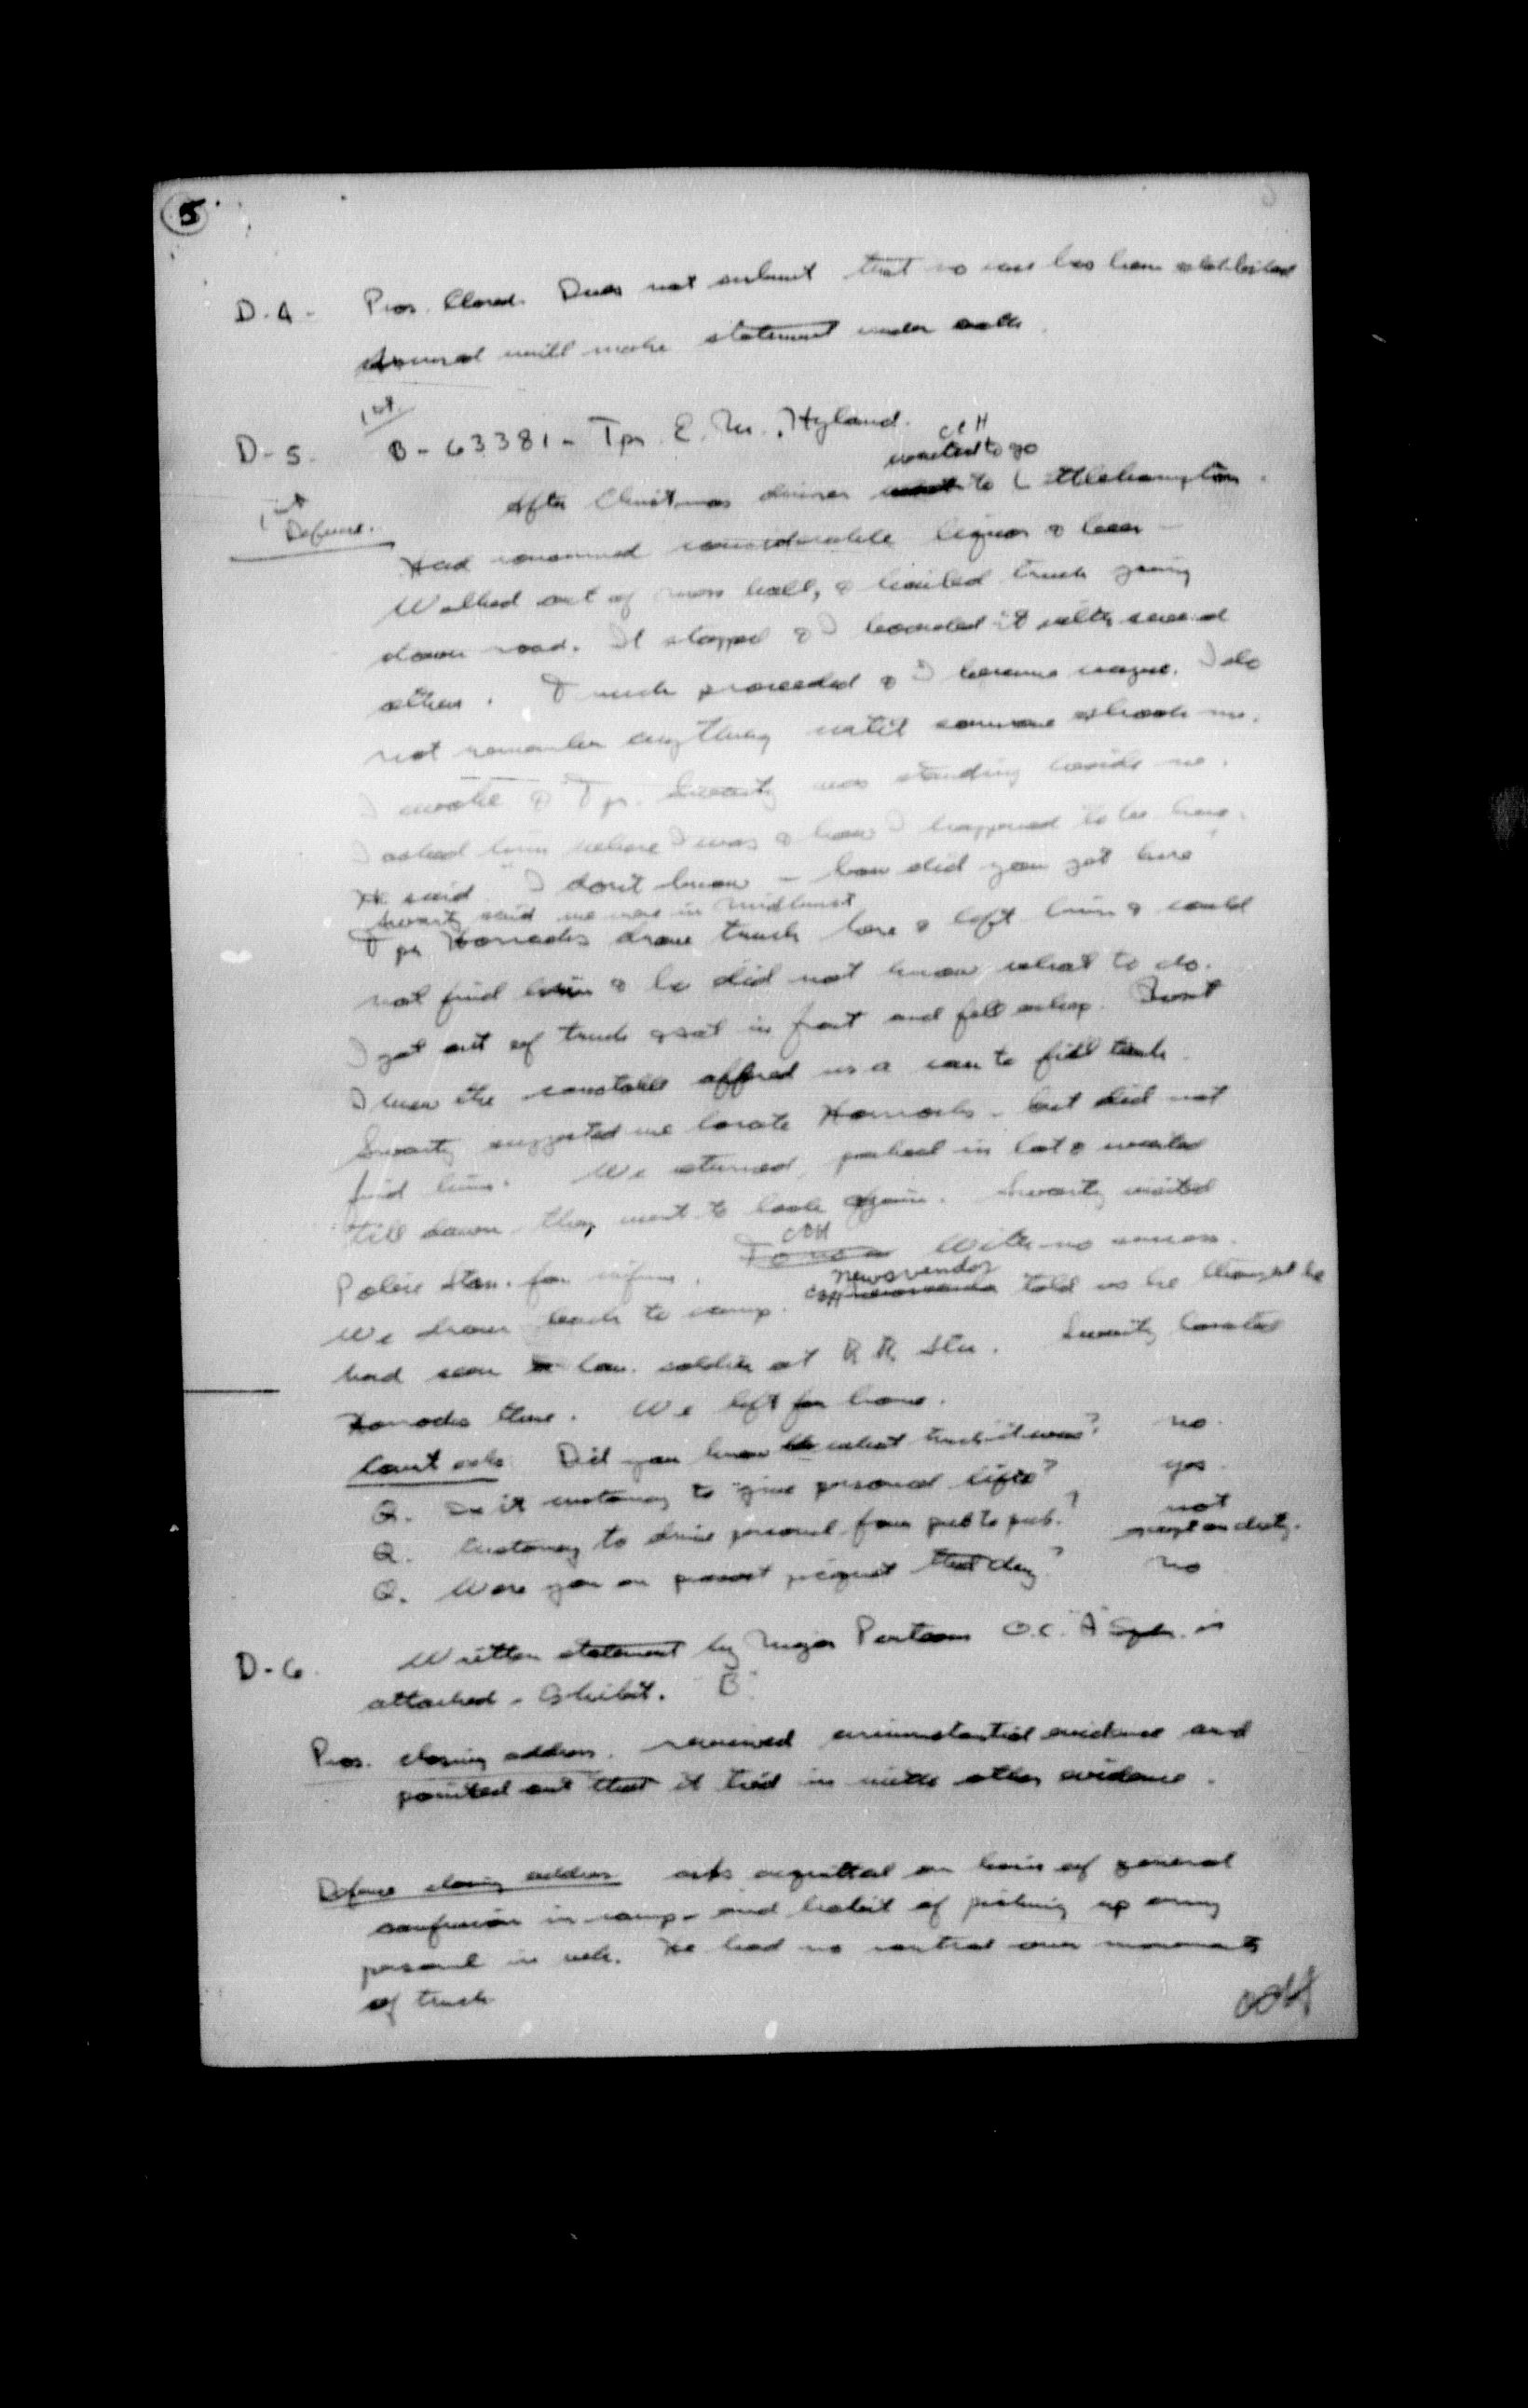 5
D.4 - Pros. Closed. Does not submit that no case has been established
Accused will make statement under oath.
1st
D-5. B-63381 - Tpr. E. M. Hyland.
COH
wanted to go
1st Defence. After Christmas dinner to Littlehampton.
Had consumed considerable liquor & beer -
Walked out of mess hall, & hailed truck going
down road. It stopped & I boarded it with several
others. Truck proceeded & I became vague. I do
not remember anything until someone shook me.
I awoke & Tpr. Swarty was standing beside me.
I asked him where I was & how I happened to be here.
He said "I don't know - how did you get here
Swarty said we were in Midhurst
Tpr Horrocks drove truck here & left him & could
not find him & he did not know what to do.
I got out of truck & sat in front and fell asleep.
I knew the constable offered us a can to fill tank.
Swarty suggested we locate Horrocks - but did not
find him. We returned, parked in lot & waited
till dawn they went to look again. Swarty visited
COH
Police Stan. for inform. With no success.
newsvendor
We drove back to camp. COH told us he thought he
had seen Can. soldier at R.R. Stn. Swarty located
Horrocks there. We left for home.
Court asks: Did you know what truck it was? no.
Q. Is it customary to give personal lifts? yes.
Q. Customary to drive personal from pub to pub? not except on duty.
Q. Were you on picquet that day? no
D-6. Written statement by Major O.C. "A" Sqdn. is
attached - Exhibit. "B"
Pros. closing address. reviewed circumstantial evidence and
pointed out that it tied in with other evidence.
Defence closing address asks acquittal on basis of general
confusion in camp - and habit of picking up army
personal in veh. He had no control over movements
of truck
COH